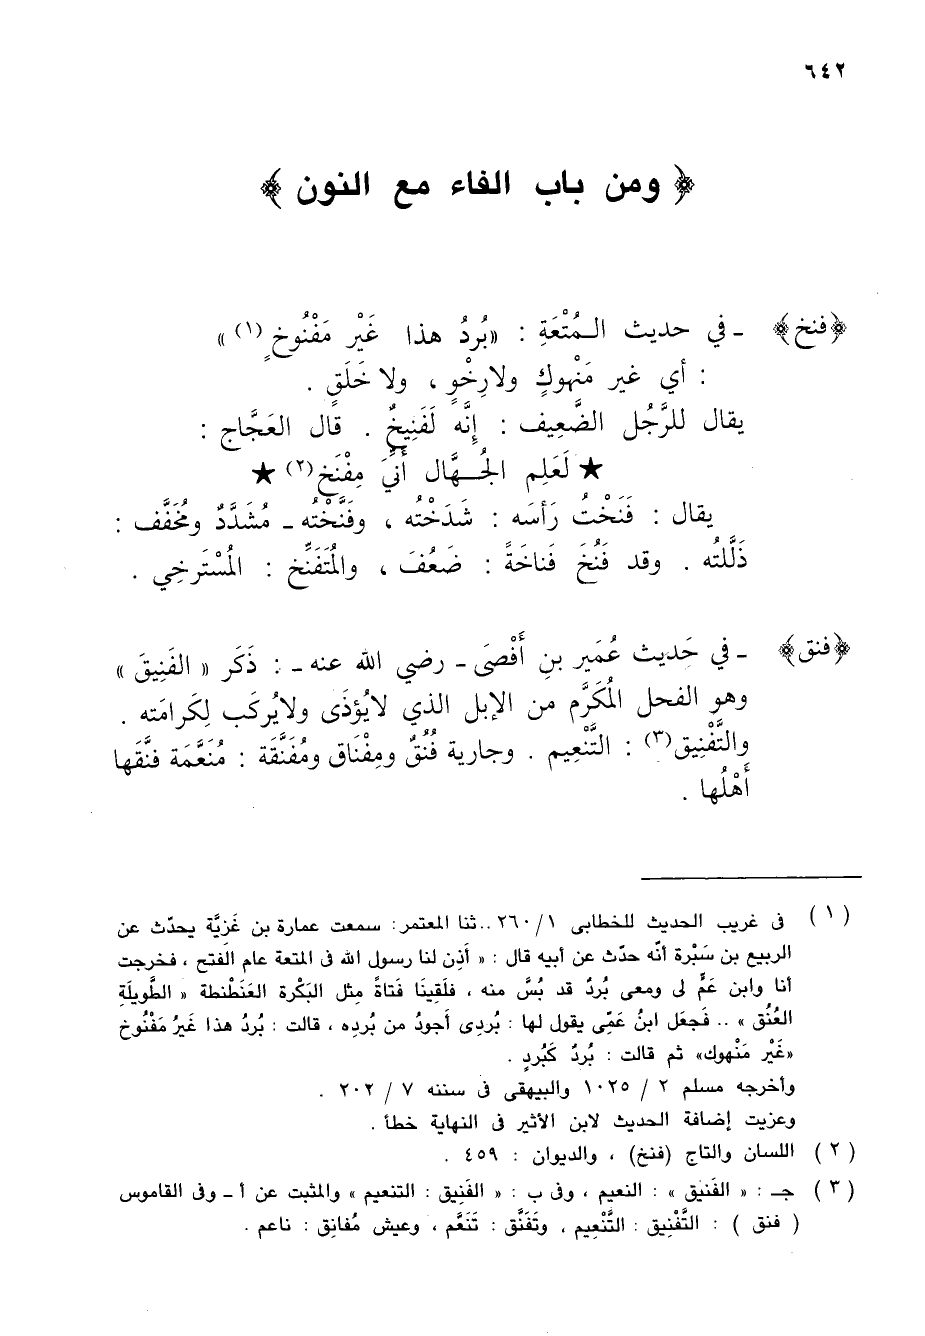 ٦٤٢
﴿ ومن باب الفاء مع النون ﴾
﴿فنخ﴾ ـ في حديث الـمُتْعَةِ : «بُردُ هذا غَيْر مَفْنُوخٍ(١)»
: أي غير مَنْهوكٍ ولارِخْوٍ ، ولا خَلَقٍ .
يقال للرَّجُل الضَّعِيف : إِنَّه لَفَنِيخٌ . قال العَجَّاج :
★ لَعَلِم الجُـهَّال أَنِّيَ مِفْنَخ(٢) ★
يقال : فَنَخْتُ رَأسَه : شَدَخْتُه ، وفَنَّخْتُه ـ مشَدَّدٌ ومُخَفَّف :
ذَلَّلتُه . وقد فَنُخَ فَناخَةً : ضَعُفَ ، والمُتَفَنِّخ : المُسْتَرخِي .
﴿فنق﴾ ـ في حَدِيث عُمَير بنِ أَفْصَى ـ رضي الله عنه ـ : ذَكَر « الفَنِيقَ »
وهو الفحل المُكَرَّم من الإبل الذي لايُؤذَى ولايُركَب لِكَرامَته .
والتَّفْنِيق(٣) : التَّنْعِيم . وجارية فُنُقٌ ومِفْناق ومُفَنَّقَة : مُنَعَّمَة فَنَّقَها
أَهْلُها .
(١) فى غريب الحديث للخطابى ١/ ٢٦٠ .. ثنا المعتمر: سمعت عمارة بن غَزِيَّة يحدّث عن
الربيع بن سَبْرة أنّه حدّث عن أبيه قال : « أذِن لنا رسول الله فى المتعة عام الفتح ، فخرجت
أنا وابن عَمٍّ لى ومعى بُردٌ قد بُسَّ منه ، فلَقِينَا فَتاةً مِثل البَكْرة العَنَطْنطة « الطَّويلَةِ
العُنُق » .. فَجعَل ابنُ عَمِّى يقول لها : بُردِى أجودُ من بُردِه ، قالت : بُردُ هذا غَيرُ مَفْنُوخ
«غَيْر مَنْهوك» ثم قالت : بُردٌ كَبُردٍ .
وأخرجه مسلم ٢ / ١٠٢٥ والبيهقى فى سننه ٧ / ٢٠٢ .
وعزيت إضافة الحديث لابن الأثير فى النهاية خطأ .
(٢) اللسان والتاج (فنخ) ، والديوان : ٤٥٩ .
(٣) جـ : « الفَنيق » : النعيم ، وفى ب : « الفَنِيق : التنعيم » والمثبت عن أ ـ وفى القاموس
( فنق ) : التَّفْنِيق : التَّنْعِيم ، وتَفَنَّق : تَنَعَّم ، وعيش مُفانِق : ناعم .